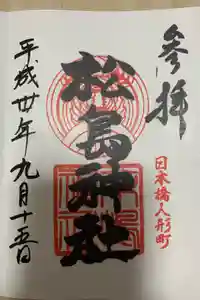 參拝
日本橋人形町
松島神社
平成廿年九月十五日